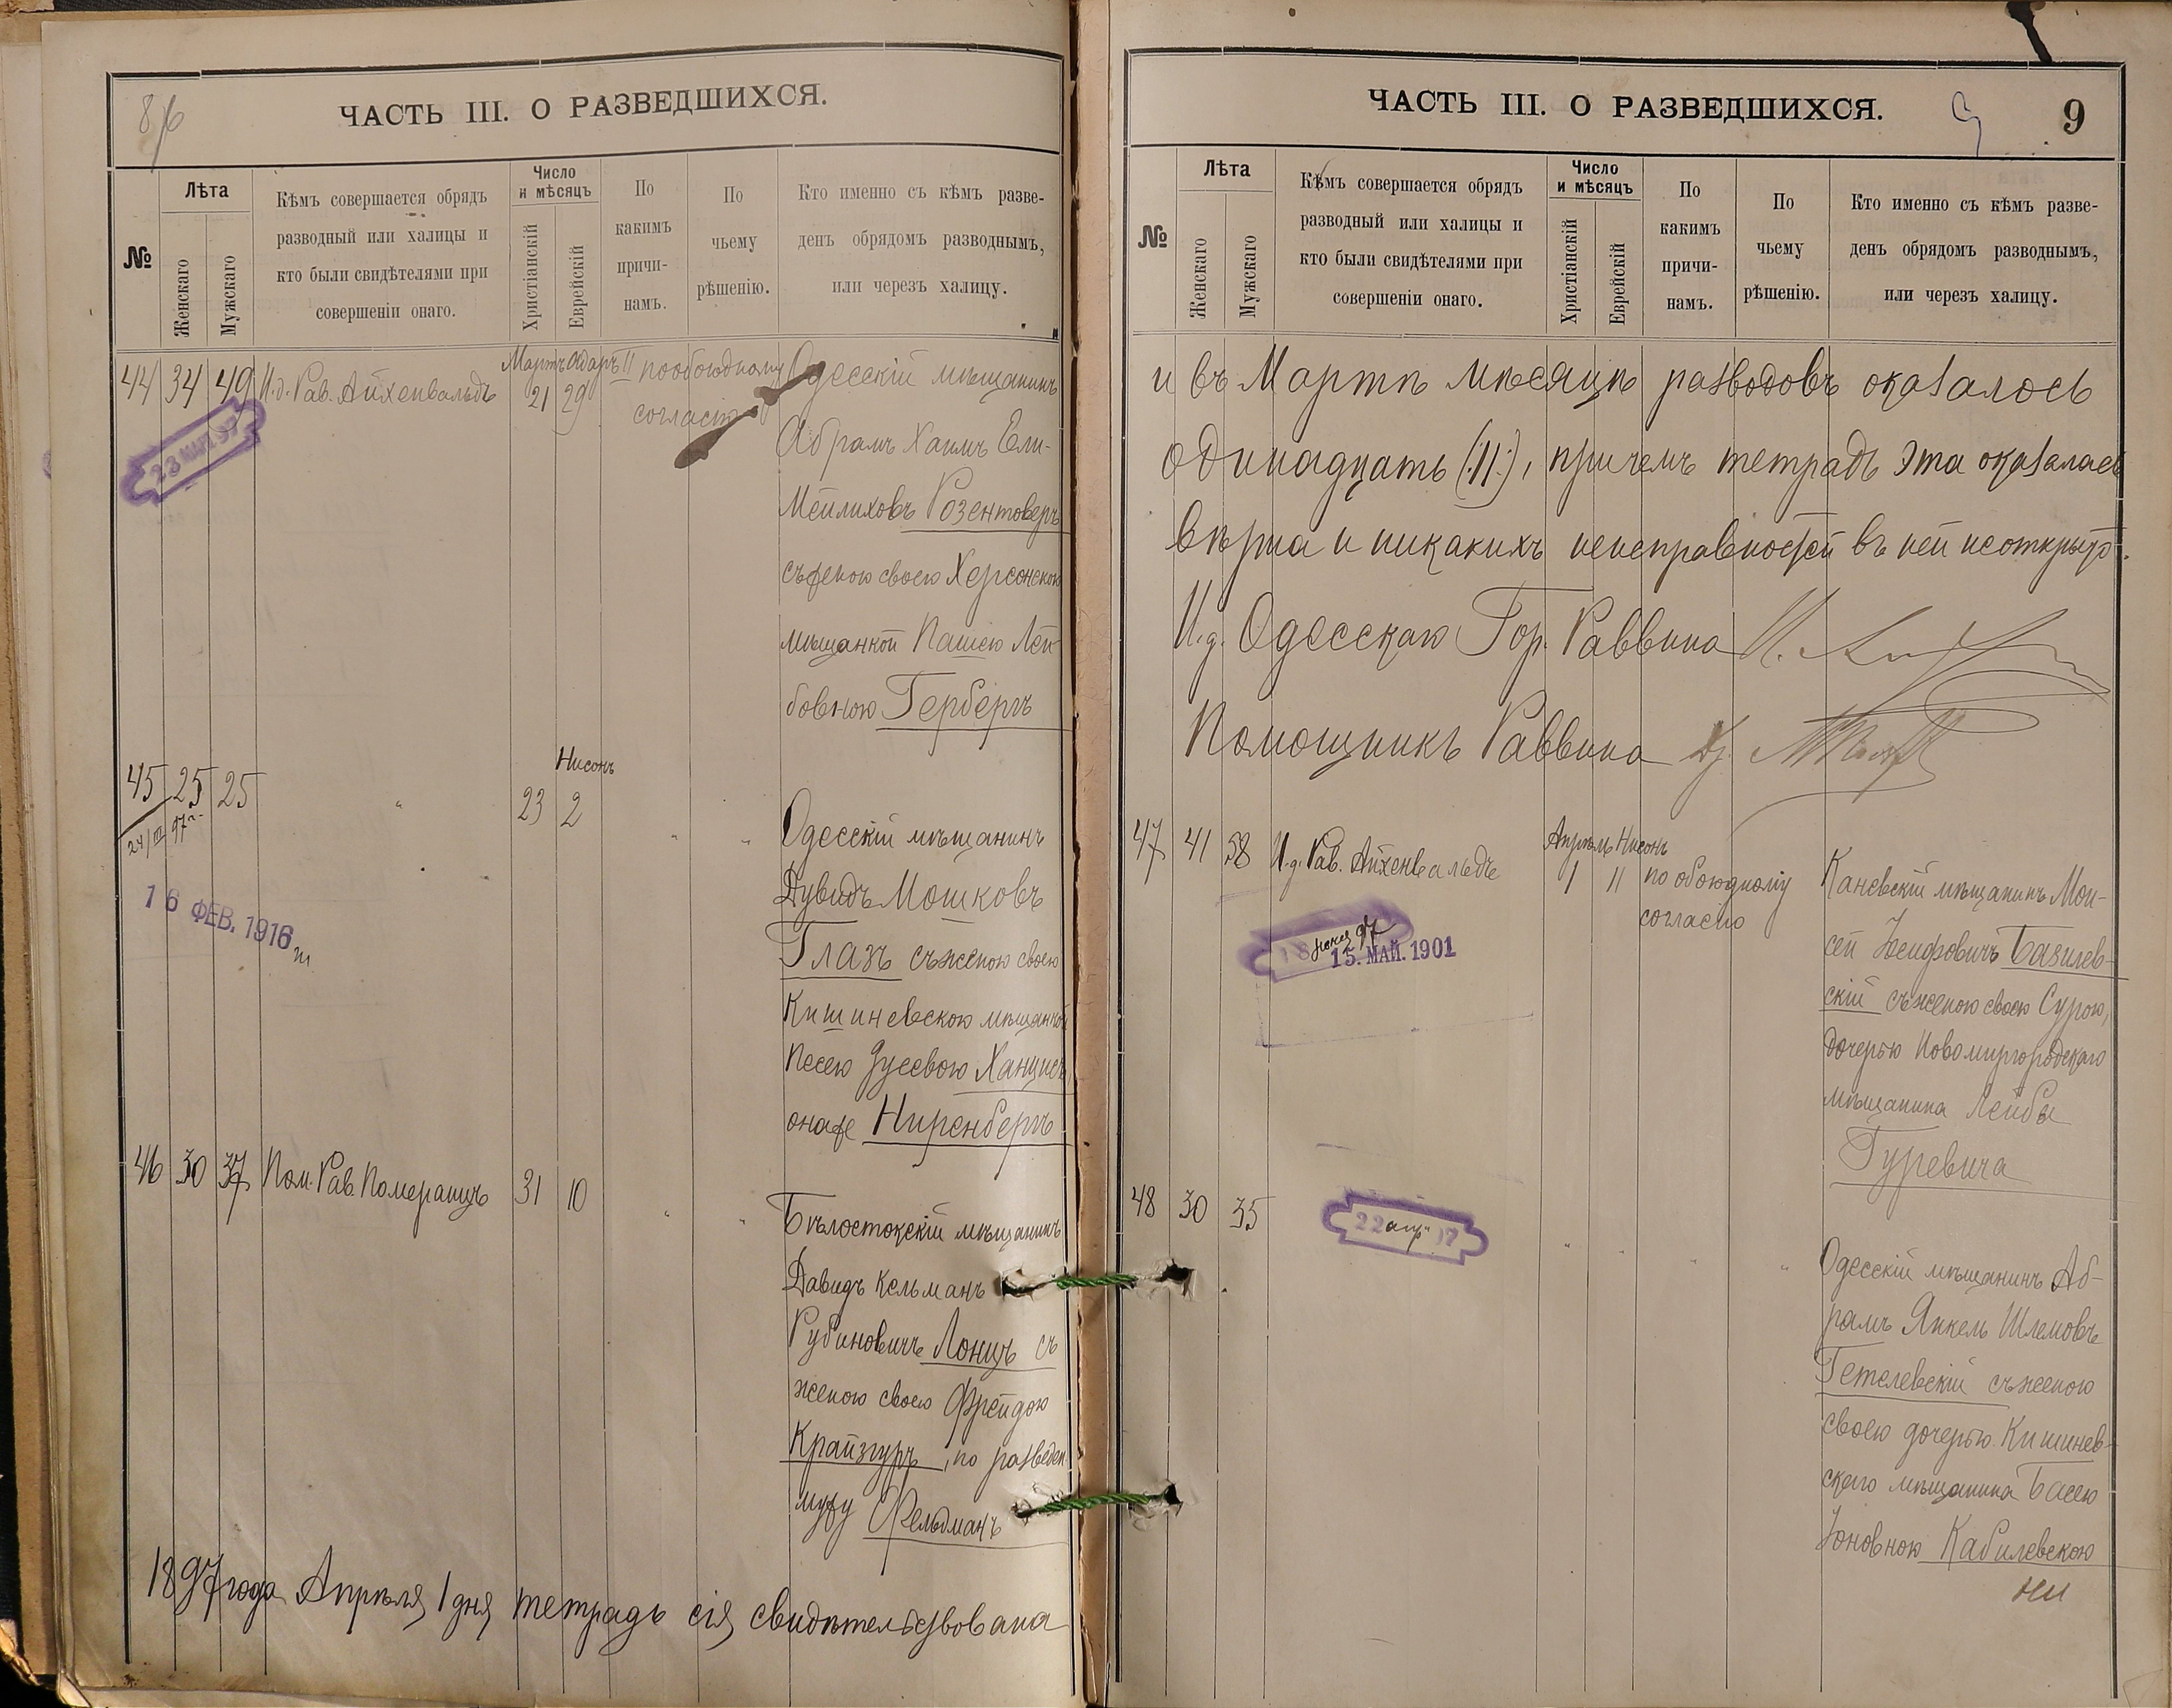 8/6
ЧАСТЬ III. О РАЗВЕДШИХСЯ.
№
Лѣта
Женскаго
Мужскаго
Кѣмъ совершается обрядъ
разводный или халицы и
кто были свидѣтелями при
совершеніи онаго.
Число
и мѣсяцъ
Христіанскій
Еврейскій
По
какимъ
причи-
намъ.
По
чьему
рѣшенію.
Кто именно съ кѣмъ разве-
денъ обрядомъ разводнымъ,
или черезъ халицу.
44 34 49 И.д. Рав. Айхенвальдъ
Мартъ Адаръ II
21 29
по обоюдному
согласію
Одесскій мѣщанинъ
Абрамъ Хаимъ Ели-
Мейлиховъ Розентоверъ
съ женою своею Херсонскою
мѣщанкой Пашею Лей-
бовною Герберъ
23 МАР 97
45 25 25 "
Нисонъ
23 2 " "
24/III 97 г.
16 ФЕВ. 1916
Одесскій мѣщанинъ
Дувидъ Мошковъ
Глазъ съ женою своею
Кишиневскою мѣщанкой
Песею Зусевою Ханцисъ
онаже Ниренбергъ
46 30 37 Пом. Рав. Померанцъ 31 10 " "
Бѣлостокскій мѣщанинъ
Давидъ Кельманъ
Рубиновичъ Лонцъ съ
женою своею Фрейдою
Крайзгуръ, по разведен.
мужу Фельдманъ
1897 года Апрѣля 1 дня тетрадь сія свидѣтельствована
ЧАСТЬ III. О РАЗВЕДШИХСЯ.
9
9
№
Лѣта
Женскаго
Мужскаго
Кѣмъ совершается обрядъ
разводный или халицы и
кто были свидѣтелями при
совершеніи онаго.
Число
и мѣсяцъ
Христіанскій
Еврейскій
По
какимъ
причи-
намъ.
По
чьему
рѣшенію.
Кто именно съ кѣмъ разве-
денъ обрядомъ разводнымъ,
или черезъ халицу.
и въ Мартѣ мѣсяцѣ разводовъ оказалось
одинадцать (:11:), причемъ тетрадь эта оказалась
вѣрна и никакихъ неисправностей въ ней не открыто.
И.д. Одесскаго Гор. Раввина
Помощникъ Раввина Др.
47 41 58 И.д. Рав. Айхенвальдъ
Апрѣль Нисонъ
1 11
по обоюдному
согласію
Каневскій мѣщанинъ Мои-
сей Іосифовичъ Базилев-
скій съ женою своею Сурою,
дочерью Новомиргородскаго
мѣщанина Лейбы
Гуревича
18 97
15. МАЙ. 1901
48 30 35 " " " "
22 апр 97
Одесскій мѣщанинъ Аб-
рамъ Янкель Шлемовъ
Гетелевскій съ женою
своею дочерью Кишинев-
скаго мѣщанина Басею
Іоновною Кабилевскою